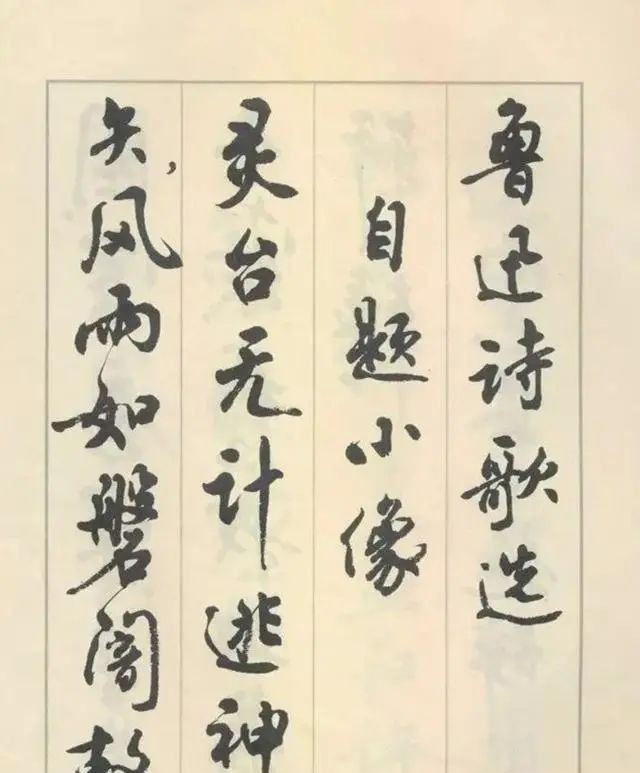 鲁迅诗歌选
自题小像
灵台无计逃神
矢，风雨如磐闇故